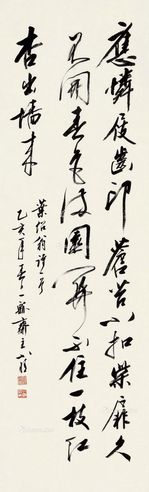 應憐屐齒印蒼苔小扣柴扉久
不開春色滿園關不住一枝紅
杏出墙來
葉紹翁詩
乙亥年